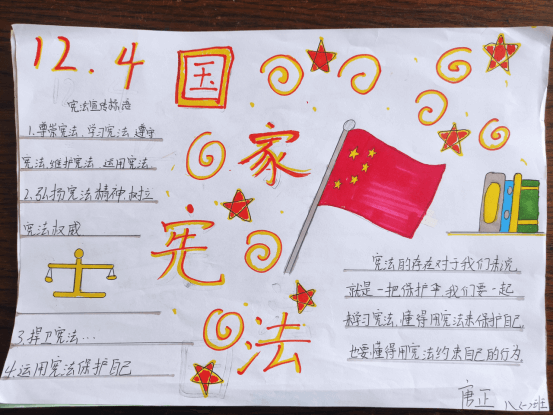 12.4
国
家
宪
法
宪法宣传标语
1.尊崇宪法、学习宪法、遵守
宪法、维护宪法、运用宪法
2.弘扬宪法精神,树立
宪法权威
3.捍卫宪法…
4.运用宪法保护自己
宪法的存在对于我们来说
就是一把保护伞,我们要一起
来学习宪法,懂得用宪法来保护自己
也要懂得用宪法约束自己的行为
唐正
八(一)班